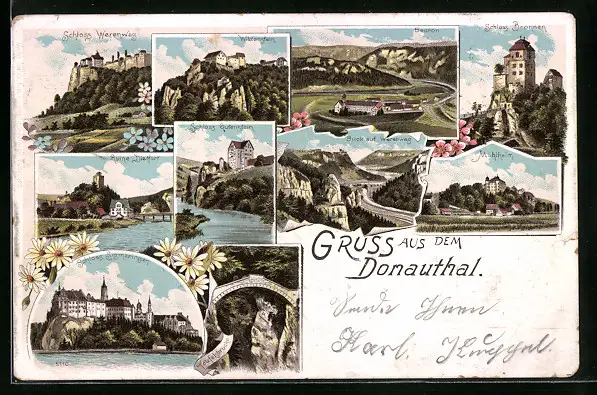 Schloss Werenwag
Wildenstein
Beuron
Schloss Bronnen
Schloss Gutenstein
Blick auf Werenwag
Mühlheim
Ruine Dietfurt
Schloss Sigmaringen
GRUSS AUS DEM
Donauthal.
Karl.